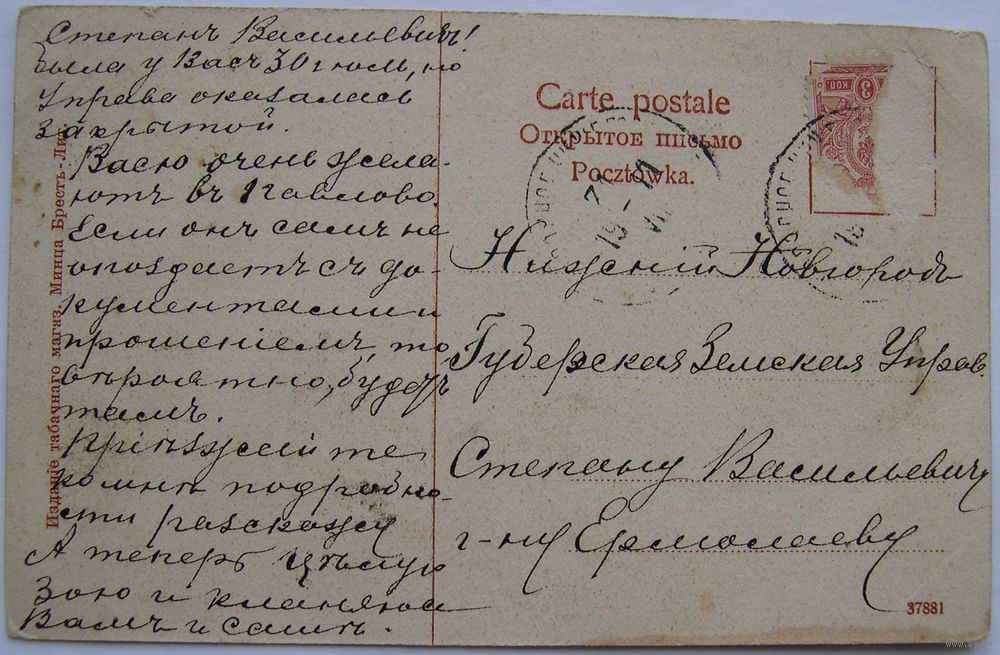 Степанъ Васильевичъ!
была у Васъ 30 іюля, но
Управа оказалась
закрытой.
Васю очень жела-
ютъ въ Павлово.
Если онъ самъ не
опоздаетъ съ до-
кументами и
прошеніемъ, то
вѣроятно, будетъ
тамъ.
Пріѣзжайте
комнѣ подробно-
сти разскажу
А теперь цѣлую
Зою и кланяюсь
Вамъ и Сашѣ.
Изданіе табачнаго магаз. Минца Брестъ-Лит.
Carte postale
Открытое письмо
Pocztówka.
3 КОП
Нижній Новгородъ
Губерская Земская Управ.
Степану Васильевичу
г-ну Ермолаеву
37881